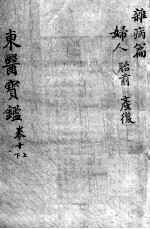 雜病篇
婦人 胎前 產後
東醫寶鑑 卷十上下